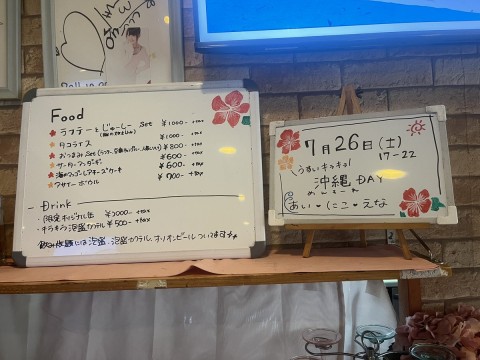 Food
ラフテーとじゅーしー Set ¥1000- +tax
タコライス ¥1000- +tax
おつまみ Set ¥800- +tax
サーターアンダギー ¥600- +tax
¥600- +tax
アサイーボウル ¥700- +tax
Drink
・限定オリジナル缶 ¥2000- +tax
・キラキラ泡盛カクテル ¥500- +tax
飲み放題には泡盛、泡盛カクテル、オリオンビールついてます
7月26日(土)
17-22
うるいキラキラ!
沖縄DAY
めんそーれ
あい♥にこ♥えな